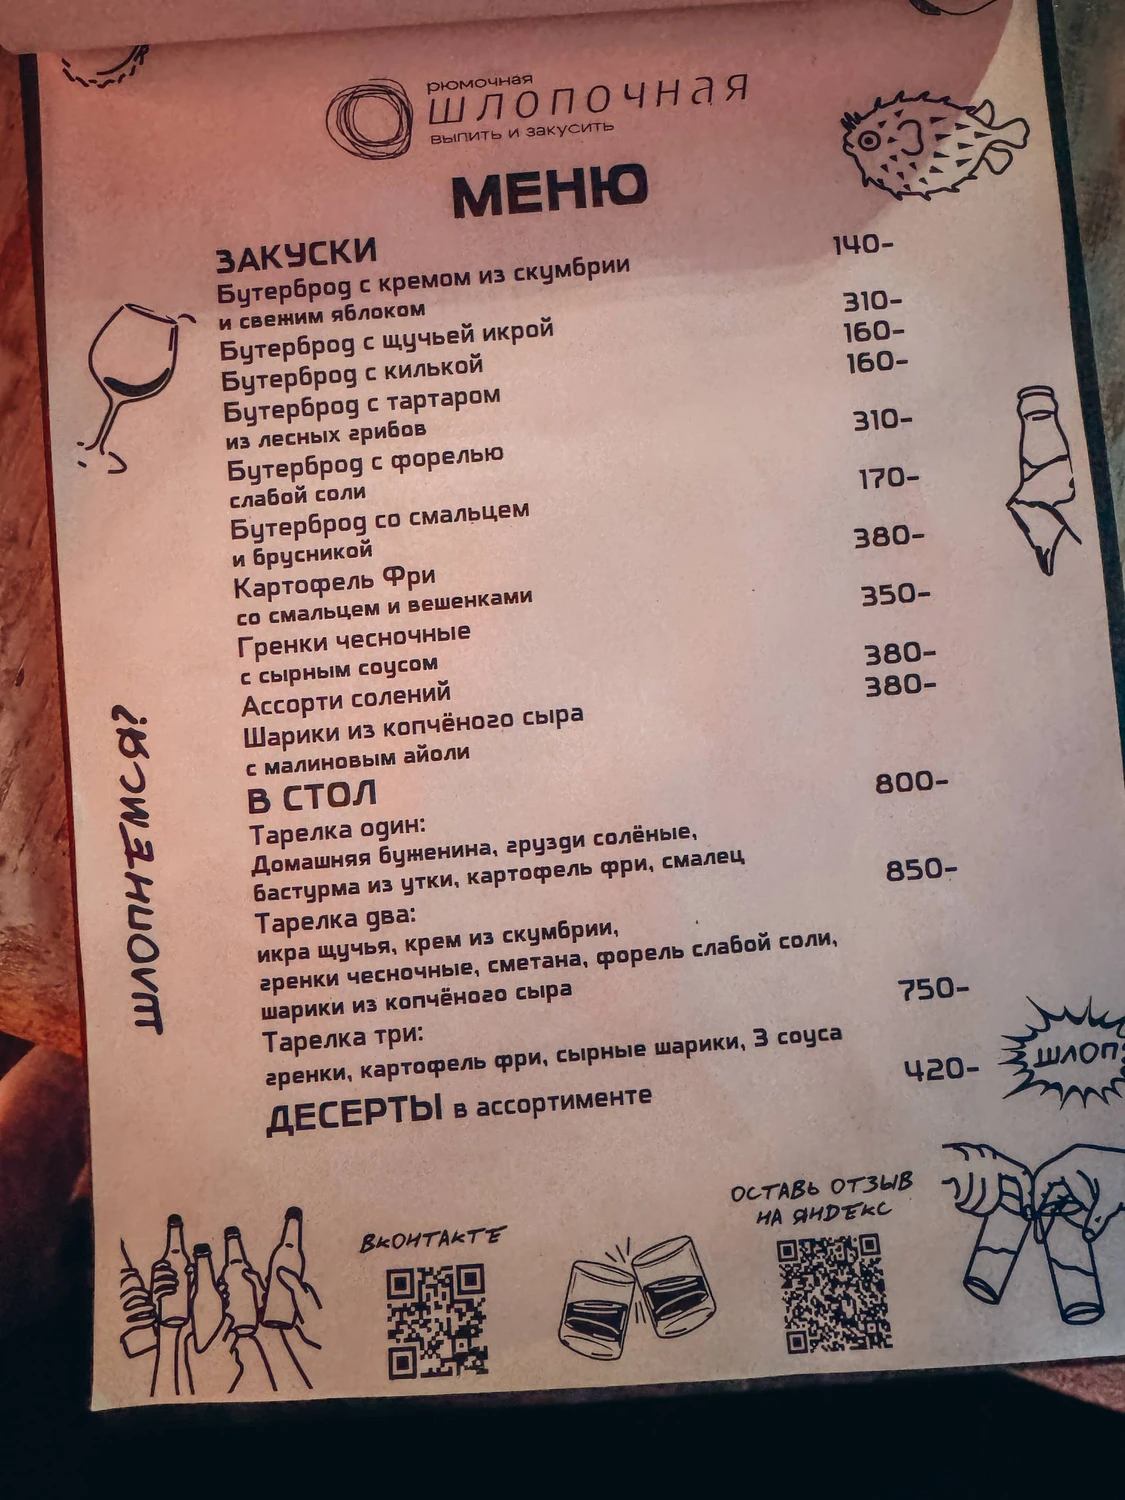 рюмочная
шлопочная
выпить и закусить
МЕНЮ
ЗАКУСКИ
Бутерброд с кремом из скумбрии 140-
и свежим яблоком
Бутерброд с щучьей икрой 310-
Бутерброд с килькой 160-
Бутерброд с тартаром 160-
из лесных грибов
Бутерброд с форелью 310-
слабой соли
Бутерброд со смальцем 170-
и брусникой
Картофель Фри 380-
со смальцем и вешенками
Гренки чесночные 350-
с сырным соусом
Ассорти солений 380-
Шарики из копчёного сыра 380-
с малиновым айоли
В СТОЛ
Тарелка один: 800-
Домашняя буженина, грузди солёные,
бастурма из утки, картофель фри, смалец
Тарелка два: 850-
икра щучья, крем из скумбрии,
гренки чесночные, сметана, форель слабой соли,
шарики из копчёного сыра
Тарелка три: 750-
гренки, картофель фри, сырные шарики, 3 соуса
ДЕСЕРТЫ в ассортименте 420-
ШЛОПНЕМСЯ?
ШЛОП
ВКОНТАКТЕ
ОСТАВЬ ОТЗЫВ
НА ЯНДЕКС